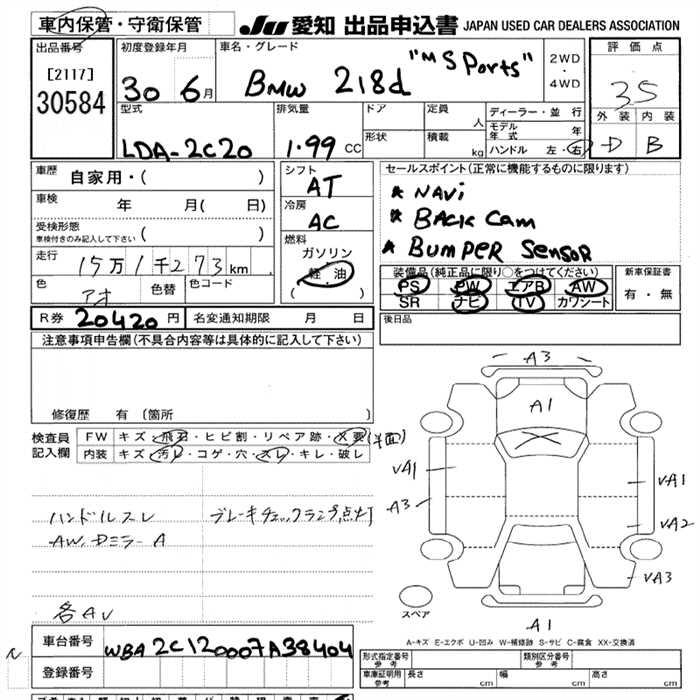 車内保管・守衛保管
JU 愛知 出品申込書 JAPAN USED CAR DEALERS ASSOCIATION
出品番号 初度登録年月 車名・グレード 評価点
[2117] 30 6月 BMW 218d "M SPorts" 2WD・4WD 35
30584 型式 排気量 ドア 定員 人 ディーラー・並行 外装 内装
LDA-2C20 1.99 CC 形状 積載 kg モデル年式 年 D B
ハンドル 左・右
車歴 自家用・( ) シフト AT セールスポイント(正常に機能するものに限ります)
車検 年 月( 日) 冷房 AC * NAVi
受検形態 ( ) * BACK Cam
車検付きのみ記入して下さい 燃料 * BUMPER SENSOR
走行 15万1千273km ガソリン
軽・油
( )
装備品(純正品に限り○をつけてください) 新車保証書
色 アオ 色替 色コード PS PW エアB AW 有・無
SR ナビ TV カワシート
R券 20420円 名変通知期限 月 日 後日品
注意事項申告欄(不具合内容等は具体的に記入して下さい)
修復歴 有 (箇所
検査員記入欄 FW キズ・飛石・ヒビ割・リペア跡・X要
内装 キズ・汚レ・コゲ・穴・スレ・キレ・破レ
ハンドルスレ ブレーキチェックランプ点灯
AW, Dミラー A
各AU
A3
A1
VA1 VA1
A3 VA2
VA3
スペア A1
A-キズ E-エクボ U-凹み W-補修跡 S-サビ C-腐食 XX-交換済
車台番号 WBA2C120007A38404
登録番号
形式指定番号 参考 類別区分番号 参考
車庫証明用 参考 長さ cm 幅 cm 高さ cm